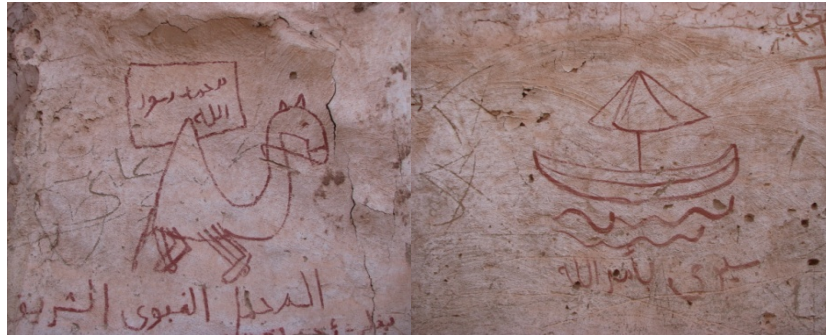 محمد رسول
الله
المحمل النبوى الشريف
سيري بأمر الله